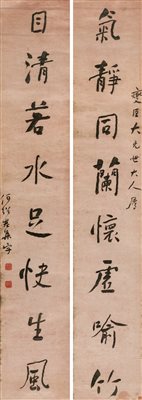 臣大兄世大人屬
氣靜同蘭懷虛喻竹
目清若水足快生風
何紹基集字